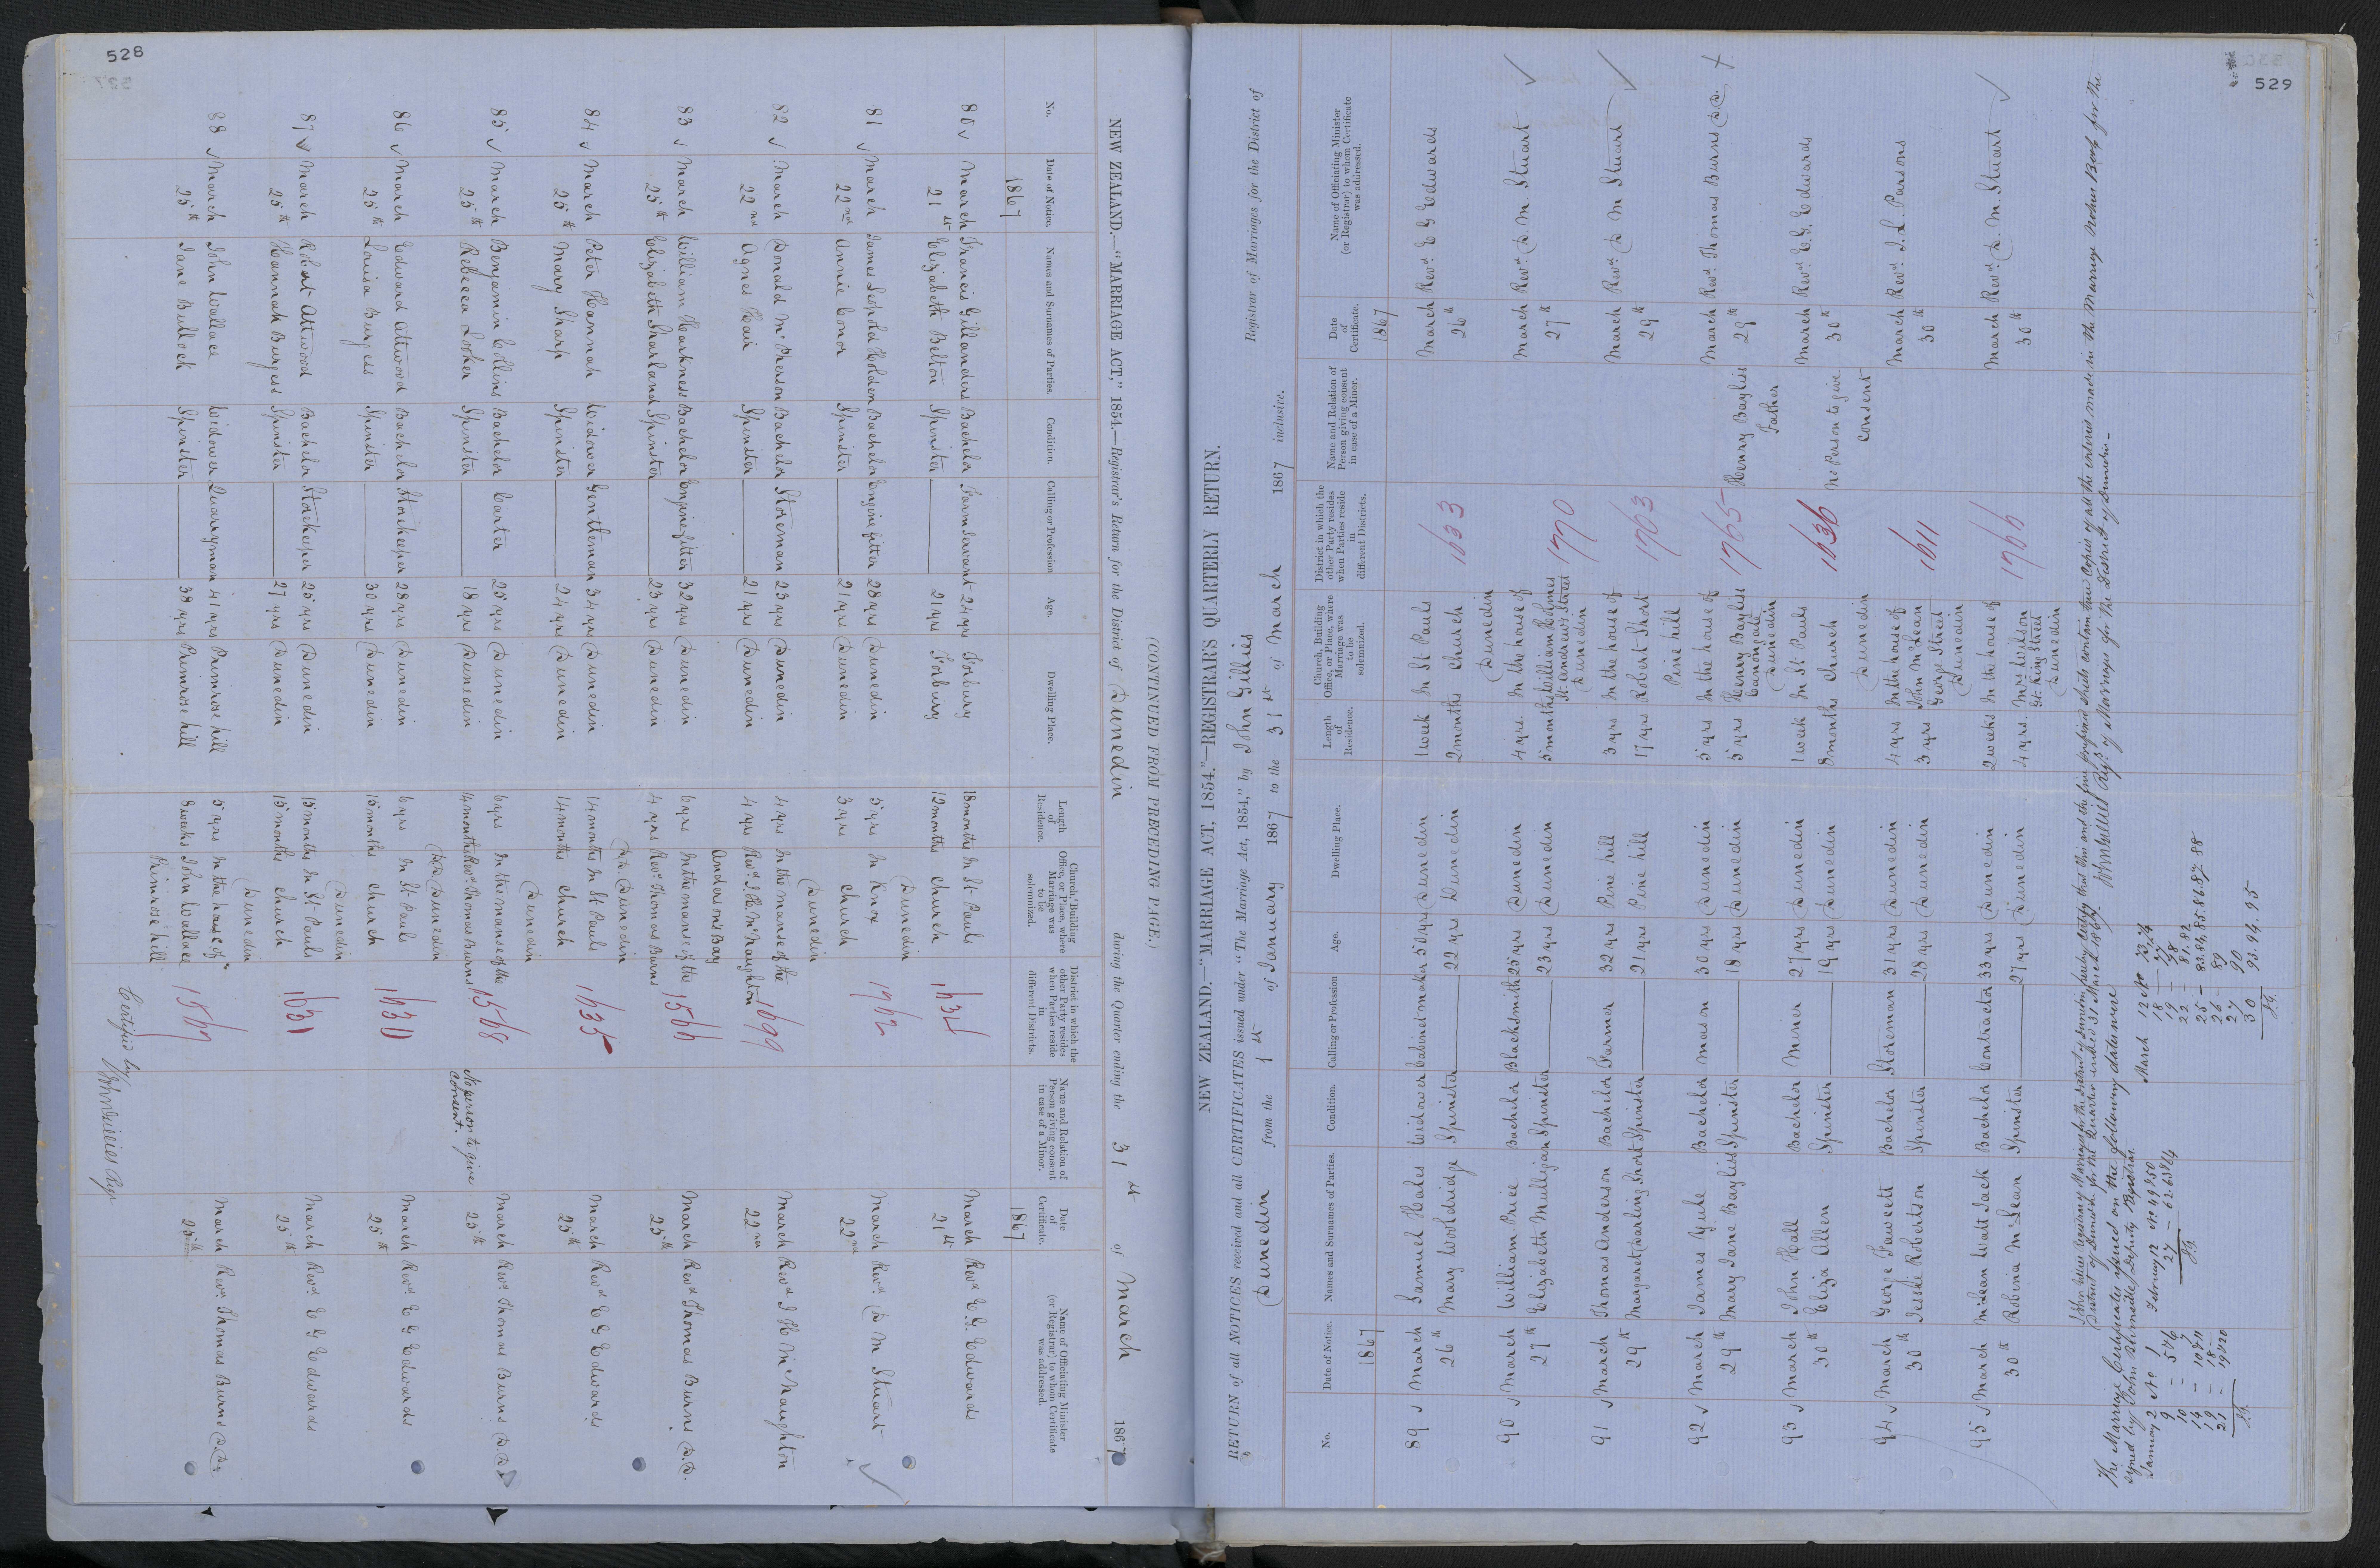 528
NEW ZEALAND.—"MARRIAGE ACT," 1854.—Registrar's Return for the District of Dunedin during the Quarter ending the 31st of March 1867
(CONTINUED FROM PRECEDING PAGE.)
No. Date of Notice. Names and Surnames of Parties. Condition. Calling or Profession Age. Dwelling Place. Length of Residence. Church, Building Office, or Place, where Marriage was to be solemnized. District in which the other Party resides when Parties reside in different Districts. Name and Relation of Person giving consent in case of a Minor. Date of Certificate. Name of Officiating Minister (or Registrar) to whom Certificate was addressed.
1867 1867
80 March Francis Gillanders Bachelor Farm Servant 24 yrs Forbury 18 months In St Pauls 1634 March Revd E. G. Edwards
21st Elizabeth Belton Spinster 21 yrs Forbury 19 months Church 21st
Dunedin
81 March James Leopold Holden Bachelor Engine fitter 28 yrs Dunedin 5 yrs In Knox 1762 March Revd D M Stuart
22nd Annie Conor Spinster 21 yrs Dunedin 3 yrs Church 22nd
Dunedin
82 March Donald McPherson Bachelor Storeman 23 yrs Dunedin 4 yrs In the manse of the 1699 March Revd J H McNaughton
22nd Agnes Hair Spinster 21 yrs Dunedin 4 yrs Revd J. H. McNaughton 22nd
Andersons Bay
83 March William Harkness Bachelor Engine fitter 32 yrs Dunedin 6 yrs In the manse of the 1566 March Revd Thomas Burns D.D.
25th Elizabeth Sharland Spinster 23 yrs Dunedin 4 yrs Revd Thomas Burns 25th
DD Dunedin
84 March Peter Hannah Widower Gentleman 34 yrs Dunedin 14 months In St Pauls 1635 March Revd E G Edwards
25th Mary Sharp Spinster 24 yrs Dunedin 14 months Church 25th
Dunedin
85 March Benjamin Collins Bachelor Carter 25 yrs Dunedin 6 yrs In the manse of the 1568 No person to give March Revd Thomas Burns D.D.
25th Rebecca Looker Spinster 18 yrs Dunedin 14 months Revd Thomas Burns consent. 25th
DD Dunedin
86 March Edward Attwood Bachelor Storekeeper 28 yrs Dunedin 6 yrs In St Pauls 1630 March Revd E G Edwards
25th Louisa Burgess Spinster 30 yrs Dunedin 15 months Church 25th
Dunedin
87 March Robert Attwood Bachelor Storekeeper 25 yrs Dunedin 15 months In St Pauls 1631 March Revd E G Edwards
25th Hannah Burgess Spinster 27 yrs Dunedin 15 months Church 25th
Dunedin
88 March John Wallace Widower Quarryman 41 yrs Primrose hill 5 yrs In the house of 1567 March Revd Thomas Burns D.D.
25th Jane Bullock Spinster 38 yrs Primrose hill 8 weeks John Wallace 25th
Primrose hill
Certified by John Gillies Regr
529
NEW ZEALAND.—"MARRIAGE ACT, 1854."—REGISTRAR'S QUARTERLY RETURN.
RETURN of all NOTICES received and all CERTIFICATES issued under "The Marriage Act, 1854," by John Gillies Registrar of Marriages for the District of
Dunedin from the 1st of January 1867 to the 31st of March 1867 inclusive.
No. Date of Notice. Names and Surnames of Parties. Condition. Calling or Profession Age. Dwelling Place. Length of Residence. Church, Building Office, or Place, where Marriage was to be solemnized. District in which the other Party resides when Parties reside in different Districts. Name and Relation of Person giving consent in case of a Minor. Date of Certificate. Name of Officiating Minister (or Registrar) to whom Certificate was addressed.
1867 1867
89 March Samuel Hales Widower Cabinet maker 50 yrs Dunedin 1 week In St Pauls 1633 March Revd E G Edwards
26th Mary Wooldridge Spinster 22 yrs Dunedin 2 months Church 26th
Dunedin
90 March William Price Bachelor Blacksmith 25 yrs Dunedin 4 yrs. In the house of 1770 March Revd D. M. Stuart
27th Elizabeth Mulligan Spinster 23 yrs Dunedin 5 months William Holmes 27th
St Andrew Street
Dunedin
91 March Thomas Anderson Bachelor Farmer 32 yrs Pine hill 3 yrs In the house of 1763 March Revd D M Stuart
29th Margaret Darling Short Spinster 21 yrs Pine hill 17 yrs Robert Short 29th
Pine hill
92 March James Gule Bachelor Mason 30 yrs Dunedin 5 yrs In the house of 1765 Henry Bayliss March Revd Thomas Burns D.D.
29th Mary Jane Bayliss Spinster 18 yrs Dunedin 5 yrs Henry Bayliss Father 29th
Canongate
Dunedin
93 March John Hall Bachelor Miner 27 yrs Dunedin 1 week In St Pauls 1636 No Person to give March Revd E. G. Edwards
30th Eliza Allen Spinster 19 yrs Dunedin 8 months Church consent 30th
Dunedin
94 March George Fawcett Bachelor Storeman 31 yrs Dunedin 4 yrs In the house of 1611 March Revd J. L. Parsons
30th Jessie Roberton Spinster 28 yrs Dunedin 3 yrs John McLean 30th
George Street
Dunedin
95 March McLean Watt Jack Bachelor Contractor 33 yrs Dunedin 2 weeks In the house of 1766 March Revd D. M. Stuart
30th Robina McLean Spinster 27 yrs Dunedin 4 yrs. Mrs Wilson 30th
Gt. King Street
Dunedin
I John Gillies Registrar of Marriages for the District of Dunedin hereby certify that this and the nine prefixed sheets contain true Copies of all the entries made in the Marriage Notice Book for the
District of Dunedin for the Quarter ended 31 March 1867. John Gillies Regr of Marriages for the District of Dunedin—
The Marriage Certificates issued on the following dates were
signed by John Deputy Registrar.
January 2 No 1
9 – 5 & 6
10 – 7
14 – 10 & 11
19 – 18
21 – 19 & 20
J.G.
February 12 No 49 & 50
27 – 62. 63 & 64
J.G.
March 12 No 73, 74
18 – 77
19 – 78
22 – 81. 82
25 – 83. 84. 85. 86. 87. 88
26 – 89
27 90
30 93. 94. 95
J.G.